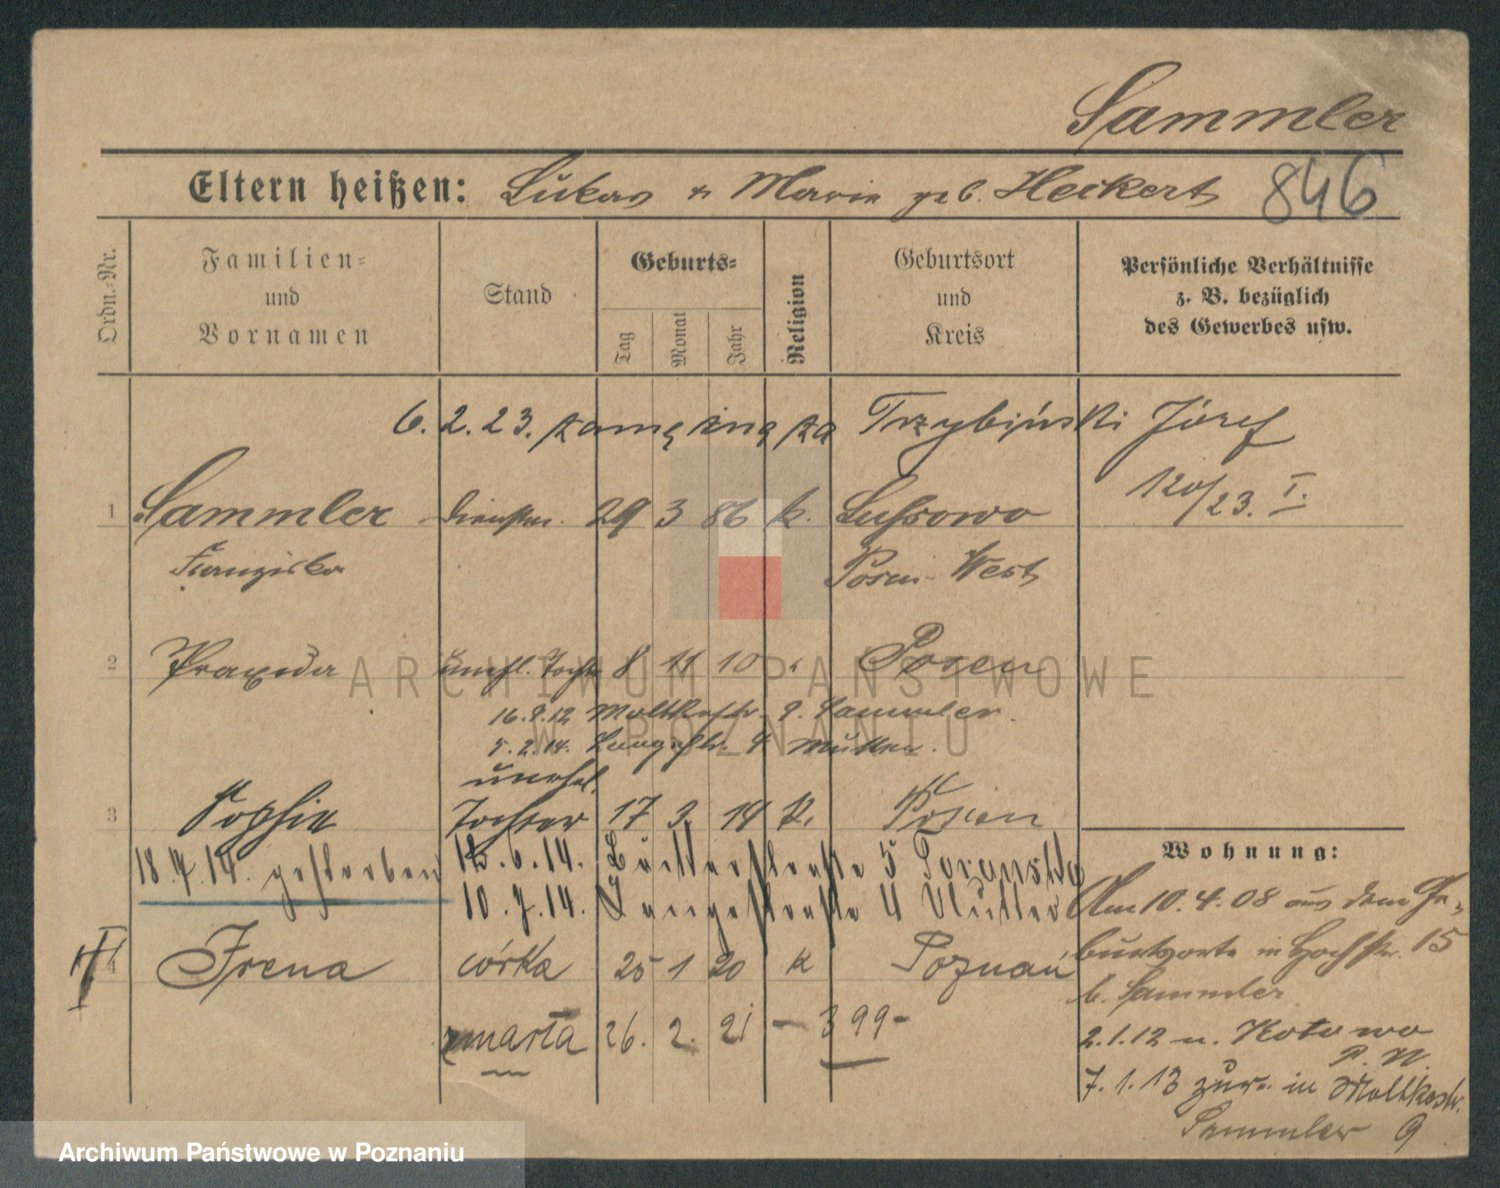 Sammler
Eltern heißen: Lukas u Marie geb. Heckert 846
Ordn.-Nr.
Familien-
und
Vornamen
Stand
Geburts-
Tag
Monat
Jahr
Religion
Geburtsort
und
Kreis
Persönliche Verhältnisse
z. B. bezüglich
des Gewerbes usw.
6. 2. 23. zamężna za Trzybiński Józef
120/23. I.
1 Sammler 29 3 86 k. Lussowo
Franziska Posen-West
2 Praxeda unehl. Tochter 8 11 10 " Posen
16.9.12 Moltkestr. 9. Sammler.
5.2.14. Langestr. 4 Mutter.
unehel.
3 Sophie Tochter 17 3. 14 k. Posen
18.4.14. gestorben 15.6.14. 5
10.7.14. Langestraße 4 Mutter
4 Irena córka 25 1 20 k Poznań
zmarła 26. 2. 21 — 399-
Wohnung:
Am 10.4.08 aus dem Ge-
burtsorte in Hochstr. 15
b. Sammler
2.1.12 n. Kotowo
P. W.
7.1.13 zur. in Moltkestr.
Sammler 9
ARCHIWUM PAŃSTWOWE
W POZNANIU
Archiwum Państwowe w Poznaniu